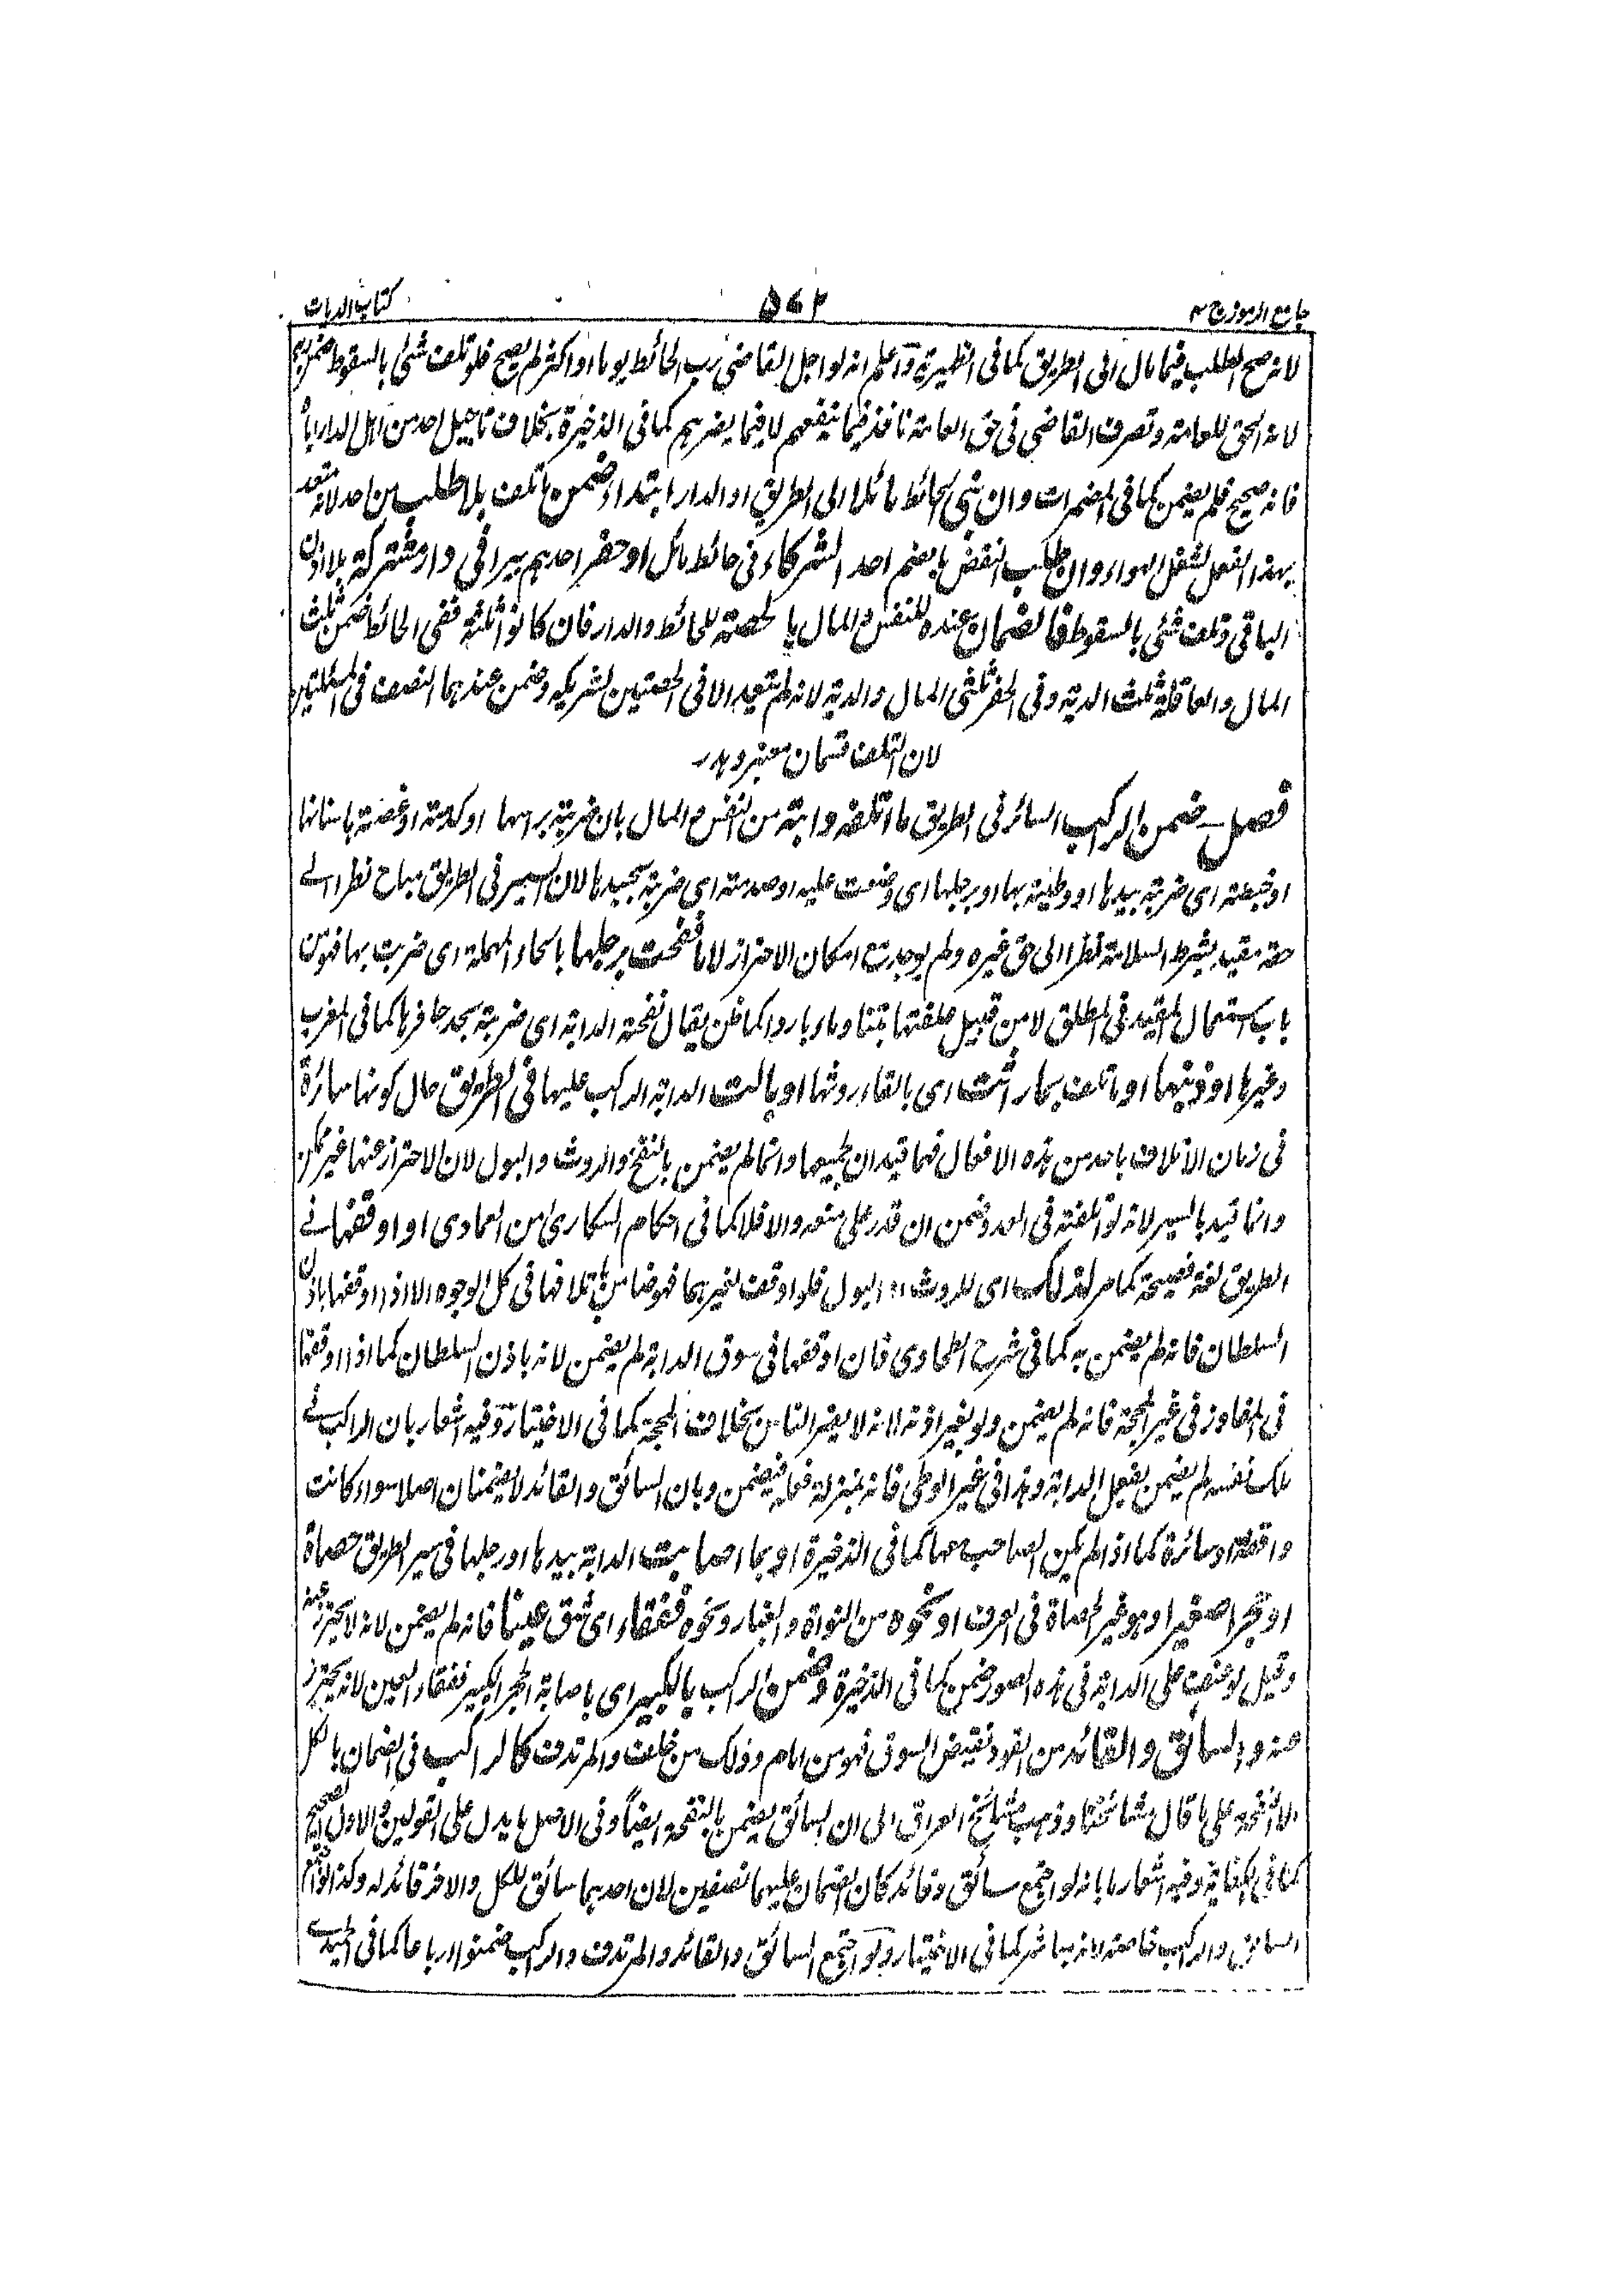 جامع الرموز ج ٢ ٥٧٢ كتاب الديات
لانه صح الطلب فيما مال الى الطريق كما في الظهيرية واعلم انه لو اجل القاضي رب الحائط يوما او اكثر لم يصح فلو تلف شئ بالسقوط ضمن
لانه الحق للعامة وتصرف القاضي في حق العامة نافذ فيما ينفعهم لا فيما يضرهم كما في الذخيرة بخلاف تاجيل احد من اهل الدار
فانه صحيح فلم يضمن كما في المضمرات وان بنى الحائط مائلا الى الطريق او الدار ابتداء ضمن ما تلف بلا طلب من احد لانه متعد
بهذا الفعل لشغل الهواء وان طلب النقض احد الشركاء في حائط مائل او حفر احدهم بيرا في دار مشتركة بلا اذن
الباقي وتلف شئ بالسقوط فالضمان عنده للنفس والمال بالحصة للحائط والدار فان كانوا ثلثة ففي الحائط ضمن ثلث
المال والعاقلة ثلث الدية وفي الحفر ثلثي المال والدية لانه لم يتعد الا في الحصتين لشريكه وضمن عندهما النصف في المسئلتين
لان التلف قسمان معتبر وهدر
فصل ضمن الراكب السائر في الطريق ما اتلفه دابته من النفس والمال بان ضربته براسها او كدمته او عضته باسنانها
او خبطته اى ضربته بيدها او وطئته بها او برجلها اى وضعت عليه او صدمته اى ضربته بجسدها لان السير في الطريق مباح نظرا الى
حقه مقيد بشرط السلامة نظرا الى حق غيره ولم يوجد مع امكان الاحتراز لا ما نفحت برجلها بالحاء المهملة اى ضربت بها فهو من
باب استعمال المقيد في المطلق لا من قبيل علفتها تبنا وماء باردا كما ظن يقال نفحته الدابة اى ضربته بحد حافرها كما في المغرب
وغيرها او ذنبها او ما تلف بما راثت اى بالقاء روثها او بالت الدابة الراكب عليها في الطريق حال كونها سائرة
في زمان الاتلاف باحد من هذه الافعال فهما قيدان لجميعها وانما لم يضمن بالنفح والروث والبول لان الاحتراز عنها غير ممكن
وانما قيد بالسير لانه لو اتلفته في العدو ضمن ان قدر على منعه والا فلا كما في احكام السكارى من العمادى او اوقفها في
الطريق لغة فصيحة كما مر لذلك اى للروث او البول فلو اوقفت لغيرهما فهو ضامن باتلافها في كل الوجوه الا اذا اوقفها باذن
السلطان فانه لم يضمن به كما في شرح الطحاوى فان اوقفها في سوق الدابة لم يضمن لانه باذن السلطان كما اذا اوقفها
في المفاوز في غير المحجة فانه لم يضمن ولو بغير اذنه لانه لا يضر الناس بخلاف المحجة كما في الاختيار وفيه اشعار بان الراكب في
ملك نفسه لم يضمن بفعل الدابة وهذا في غير الوطى فانه بمنزلة فعله فيضمن وبان السائق والقائد لا يضمنان اصلا سواء كانت
واقفة او سائرة كما اذا لم يكن الصاحب معها كما في الذخيرة او بما اصابت الدابة بيدها او رجلها في سير الطريق حصاة
او حجرا صغيرا وهو غير الحصاة في العرف او نحوه من النواة والغبار ونحوه ففقاء اى شق عينا فانه لم يضمن لانه لا يحترز عنه
وقيل لو عنفت على الدابة في هذه الصور ضمن كما في الذخيرة وضمن الراكب بالكبير اى باصابة الحجر الكبير ففقاء العين لانه يحترز
عنه والسائق والقائد من القود نقيض السوق فهو من امام وذلك من خلف والمرتدف كالراكب في الضمان بالكل
الا النفحة على ما قال مشائخنا وذهب مشائخ العراق الى ان السائق يضمن بالنفحة ايضا وفي الاصل ما يدل على القولين والاول الصحيح
كما في الكفاية وفيه اشعار ما بانه لو اجتمع سائق وقائد كان الضمان عليهما نصفين لان احدهما سائق للكل والاخر قائد له وكذا
السائق والراكب لانه مباشر كما في الاختيار ولو اجتمع السائق والقائد والمرتدف والراكب ضمنوا ارباعا كما في